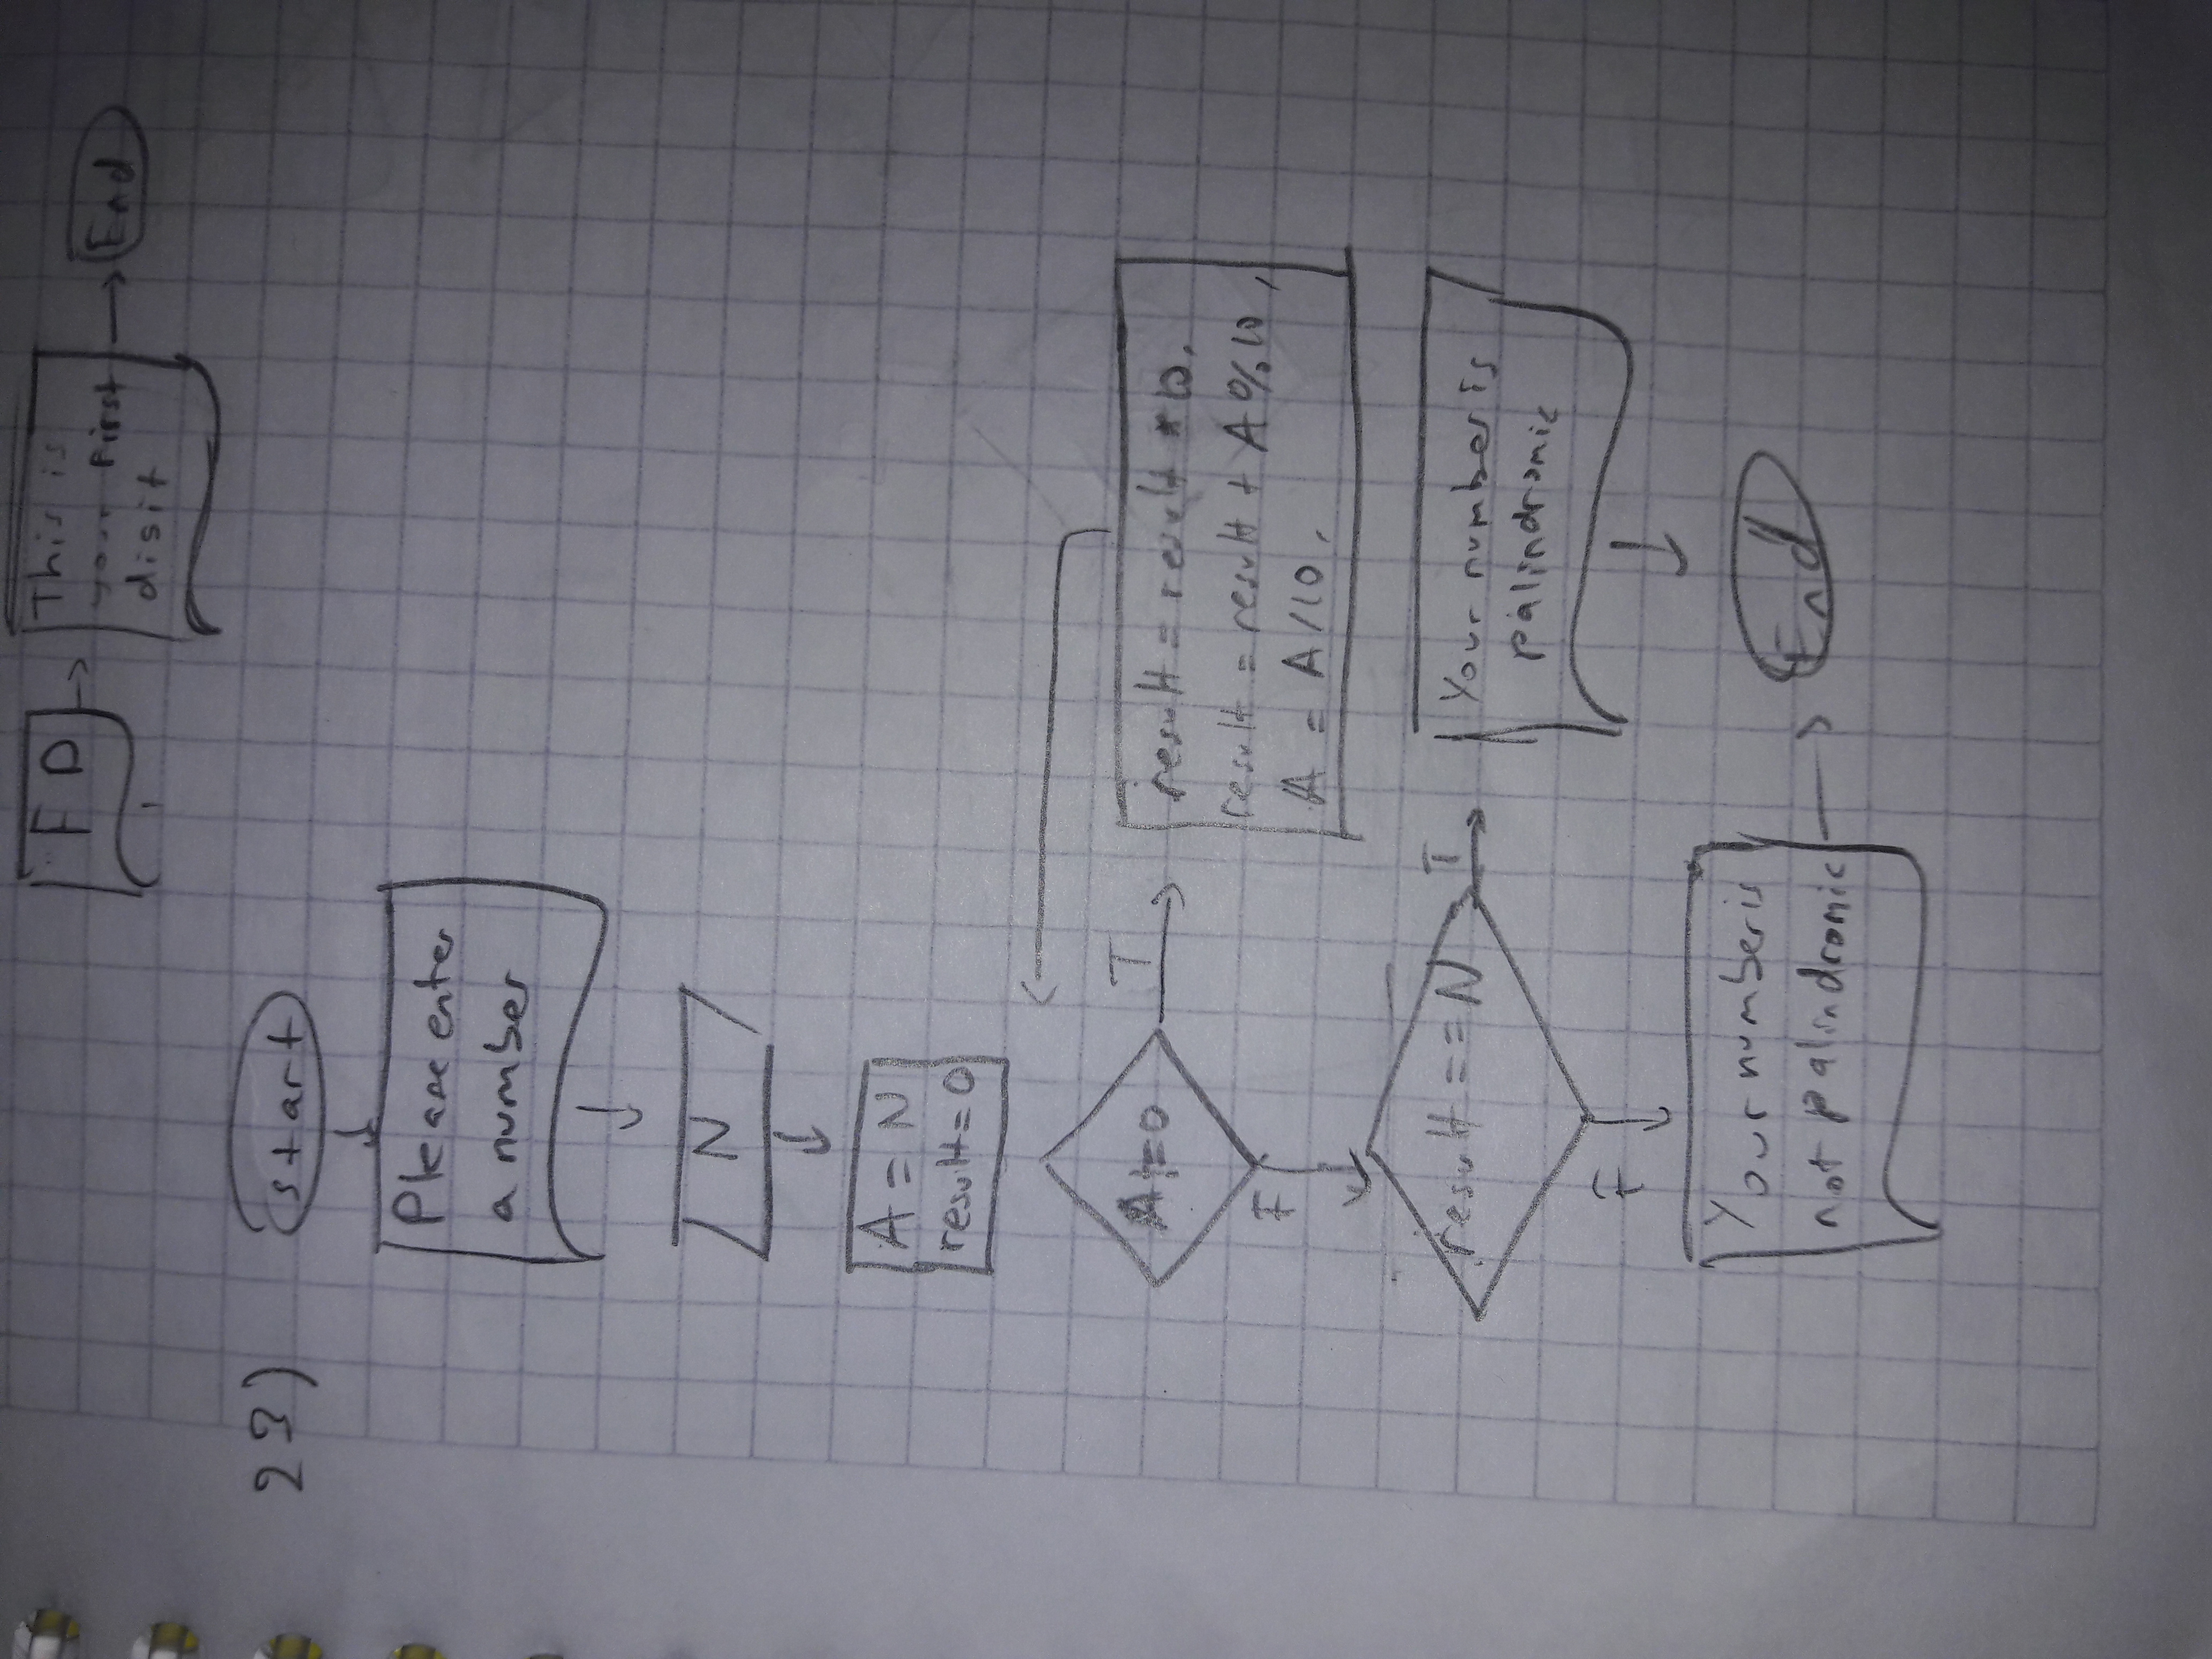 F D
This is
your First
disit
End
23)
start
Please enter
a number
N
A = N
result = 0
A != 0
T
result = result * 10,
result = result + A % 10,
A = A / 10,
F
result == N
T
Your number is
palindromic
F
Your number is
not palindromic
End